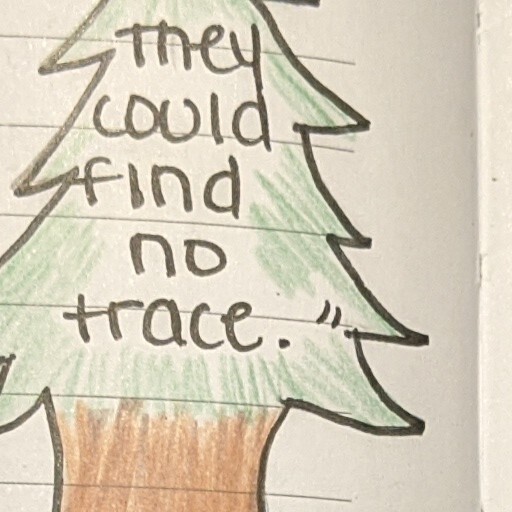 They
could
find
no
trace."